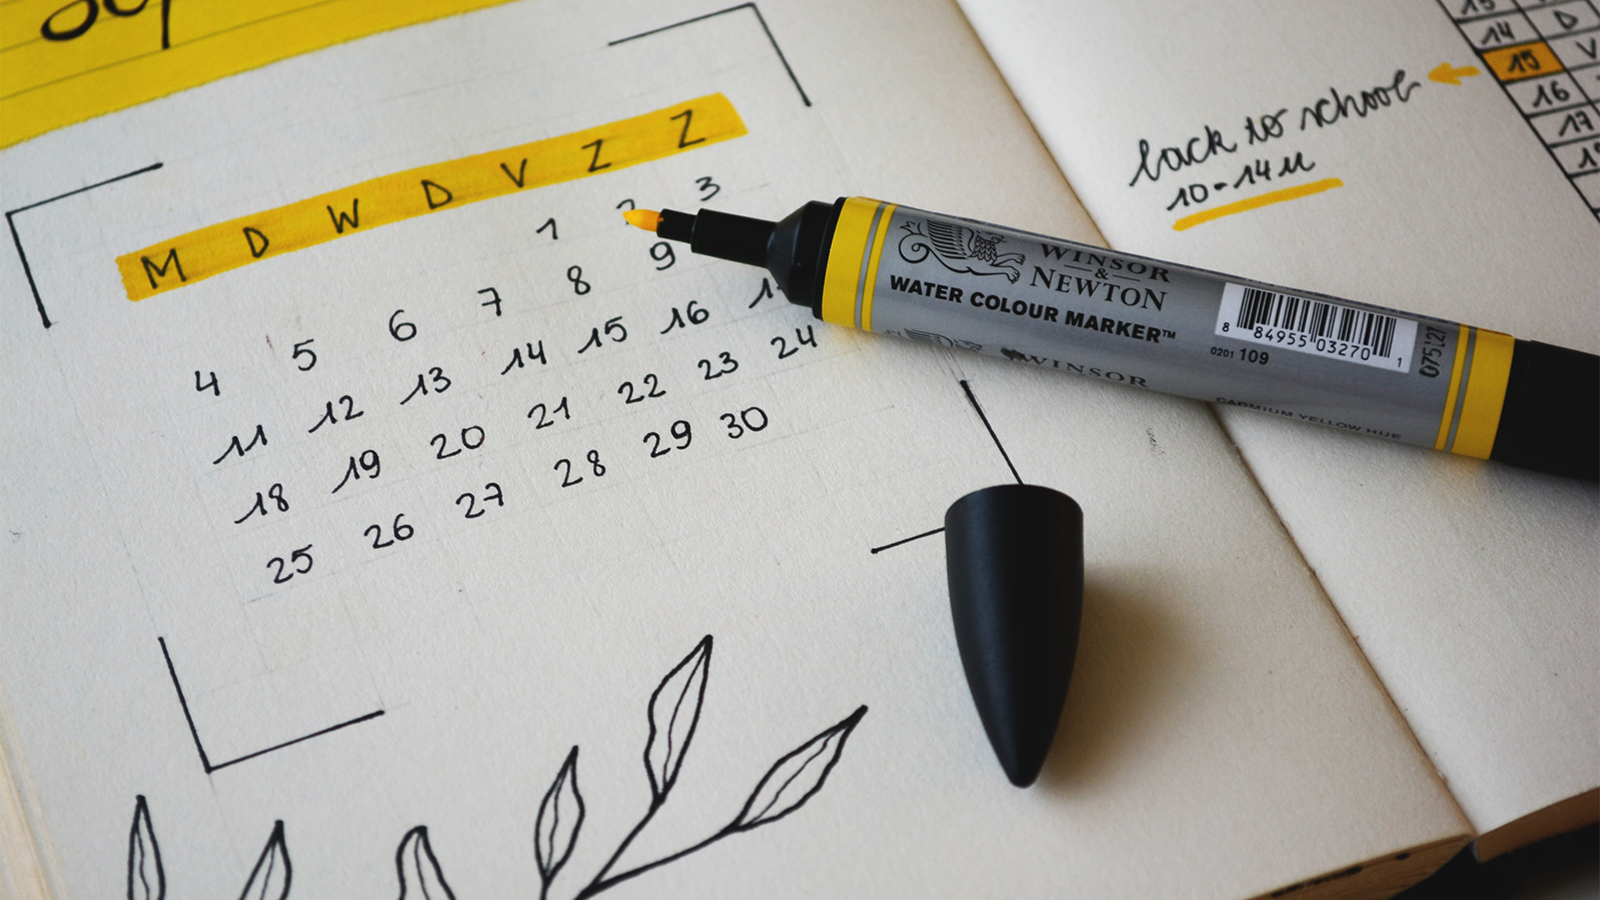 Sep
M D W D V Z Z
1 2 3
4 5 6 7 8 9
11 12 13 14 15 16
18 19 20 21 22 23 24
25 26 27 28 29 30
back to school
10-14u
14 D
15 V
16
17
WINSOR
&
NEWTON
WATER COLOUR MARKER™
8 84955 03270 1
0201 109
075121
WINSOR
CADMIUM YELLOW HUE